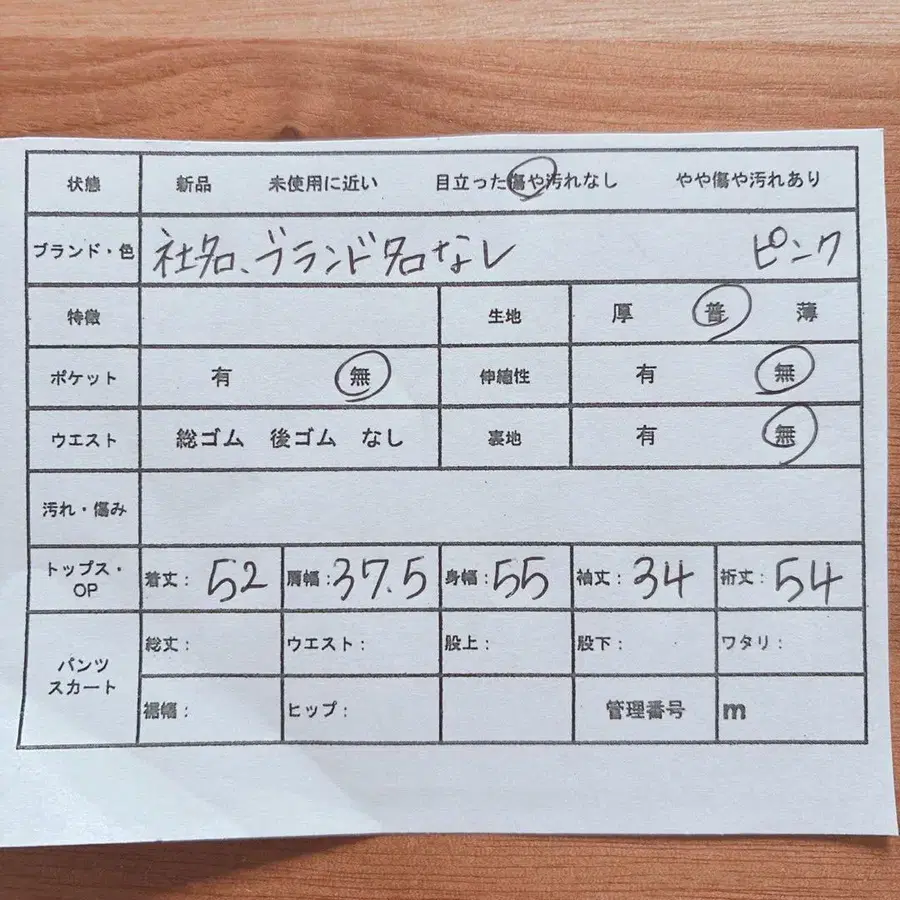 状態 新品 未使用に近い 目立った傷や汚れなし やや傷や汚れあり
ブランド・色 社名、ブランド名なし ピンク
特徴 生地 厚 普 薄
ポケット 有 無 伸縮性 有 無
ウエスト 総ゴム 後ゴム なし 裏地 有 無
汚れ・傷み
トップス・OP 着丈:52 肩幅:37.5 身幅:55 袖丈:34 裄丈:54
パンツ スカート 総丈: ウエスト: 股上: 股下: ワタリ:
裾幅: ヒップ: 管理番号 m